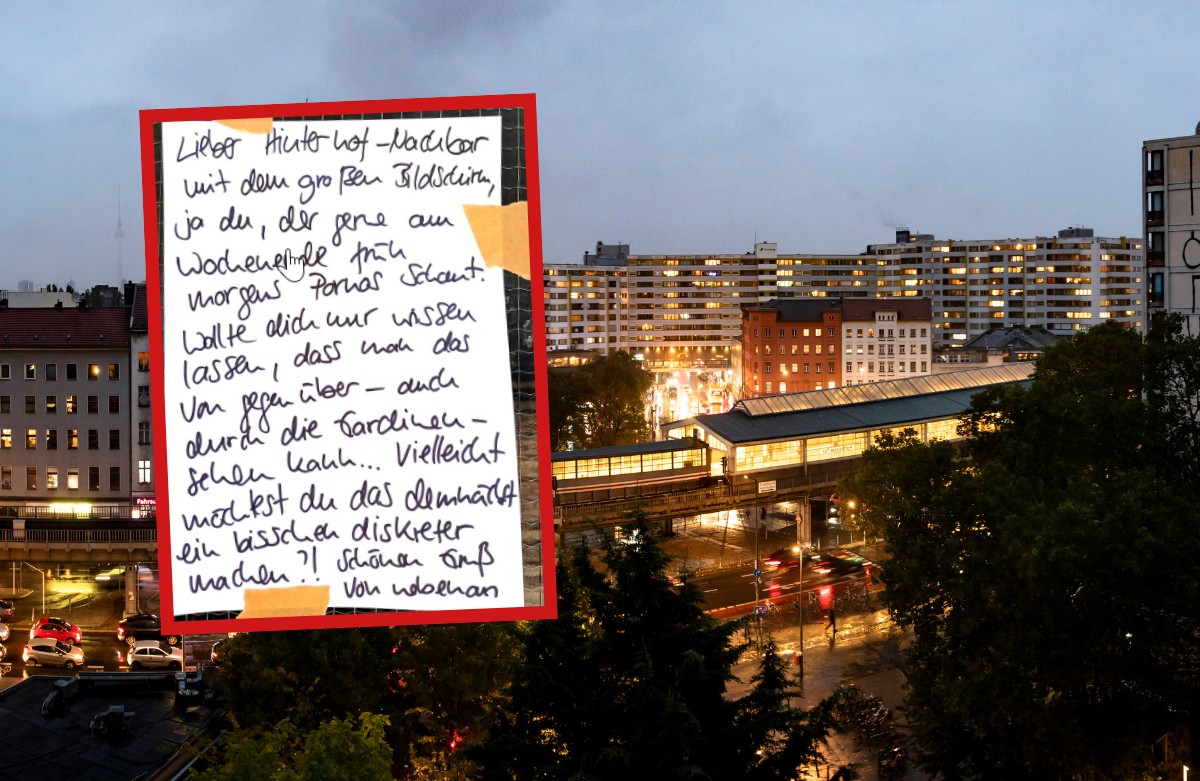 Lieber Hinterhof-Nachbar
mit dem großen Bildschirm,
ja du, der gerne am
Wochenende früh
morgens Pornos schaut.
Wollte dich nur wissen
lassen, dass man das
von gegenüber – auch
durch die Gardinen –
sehen kann... Vielleicht
möchtest du das demnächst
ein bisschen diskreter
machen?! Schönen Gruß
von nebenan